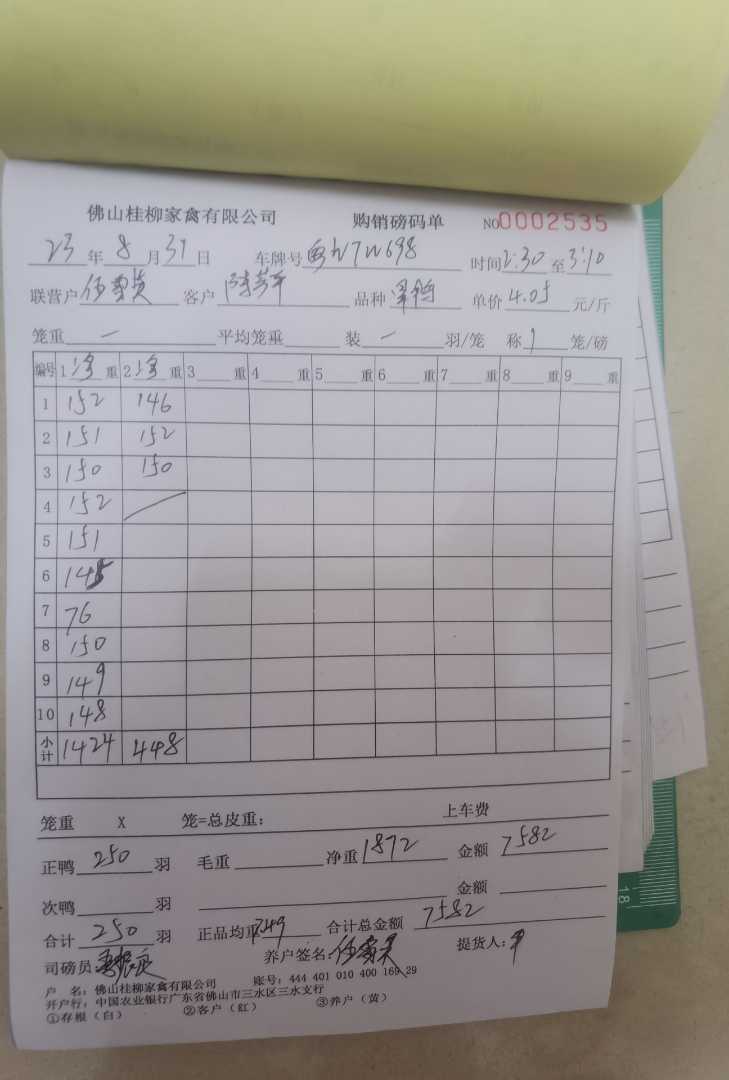 佛山桂柳家禽有限公司 购销磅码单 NO0002535
23年8月31日 车牌号 时间2:30至3:10
联营户 客户 品种 单价4.05元/斤
笼重一 平均笼重 装一羽/笼 称1笼/磅
编号 1净重 2净重 3重 4重 5重 6重 7重 8重 9重
1 152 146
2 151 152
3 150 150
4 152
5 151
6 145
7 76
8 150
9 149
10 148
小计 1424 448
笼重 X 笼=总皮重: 上车费
正鸭250羽 毛重 净重1872 金额7582
次鸭羽 金额
合计250羽 正品均重7.49 合计总金额7582
司磅员: 养户签名: 提货人:
户 名: 佛山桂柳家禽有限公司 账号: 444 401 010 400 169 29
开户行: 中国农业银行广东省佛山市三水区三水支行
①存根(白) ②客户(红) ③养户(黄)
18